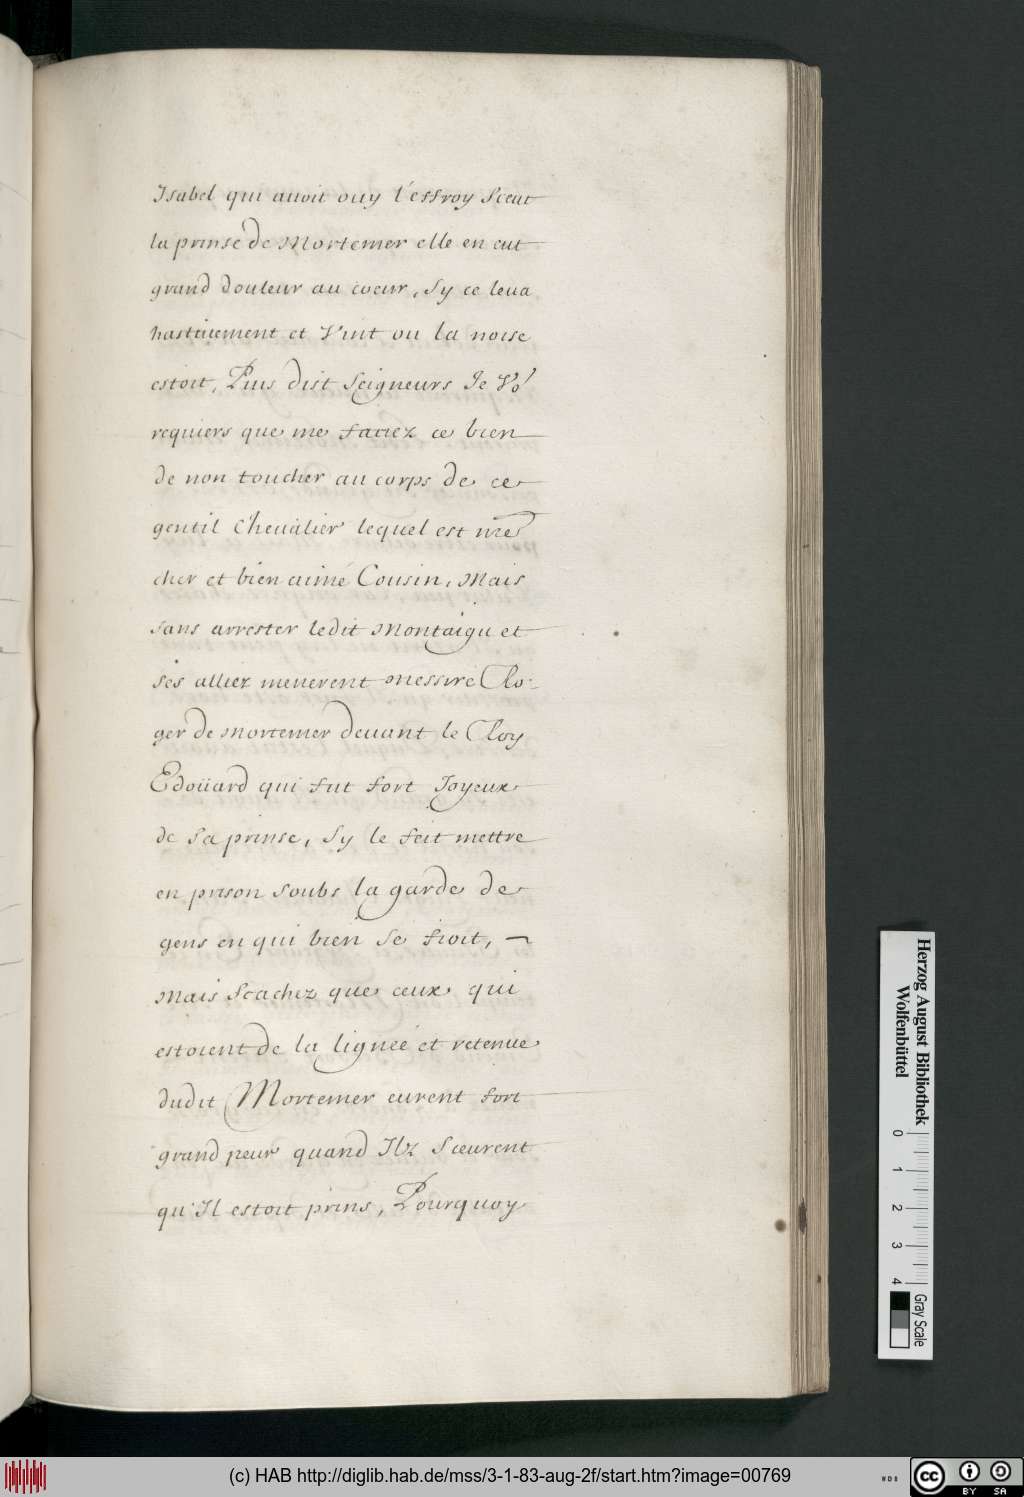 Isabel qui auoit ouy l'effroy sceut
la prinse de Mortemer elle en eut
grand douleur au coeur, sy ce leua
hastiuement et vint ou la noise
estoit, Puis dist seigneurs Je vo9
requiers que me faciez ce bien
de non toucher au corps de ce
gentil Cheualier lequel est mre
cher et bien aimé Cousin, Mais
sans arrester ledit Montaigu et
ses alliez menerent messire Ro-
ger de Mortemer deuant le Roy
Edoüard qui fut fort Joyeux
de sa prinse, Sy le feit mettre
en prison soubs la garde de
gens en qui bien se fioit,
Mais scachez que ceux qui
estoient de la lignée et retenue
dudit Mortemer eurent fort
grand peur quand Ilz sceurent
qu'Il estoit prins, Pourquoy
Herzog August Bibliothek
Wolfenbüttel
0 1 2 3 4
Gray Scale
(c) HAB http://diglib.hab.de/mss/3-1-83-aug-2f/start.htm?image=00769
cc BY SA